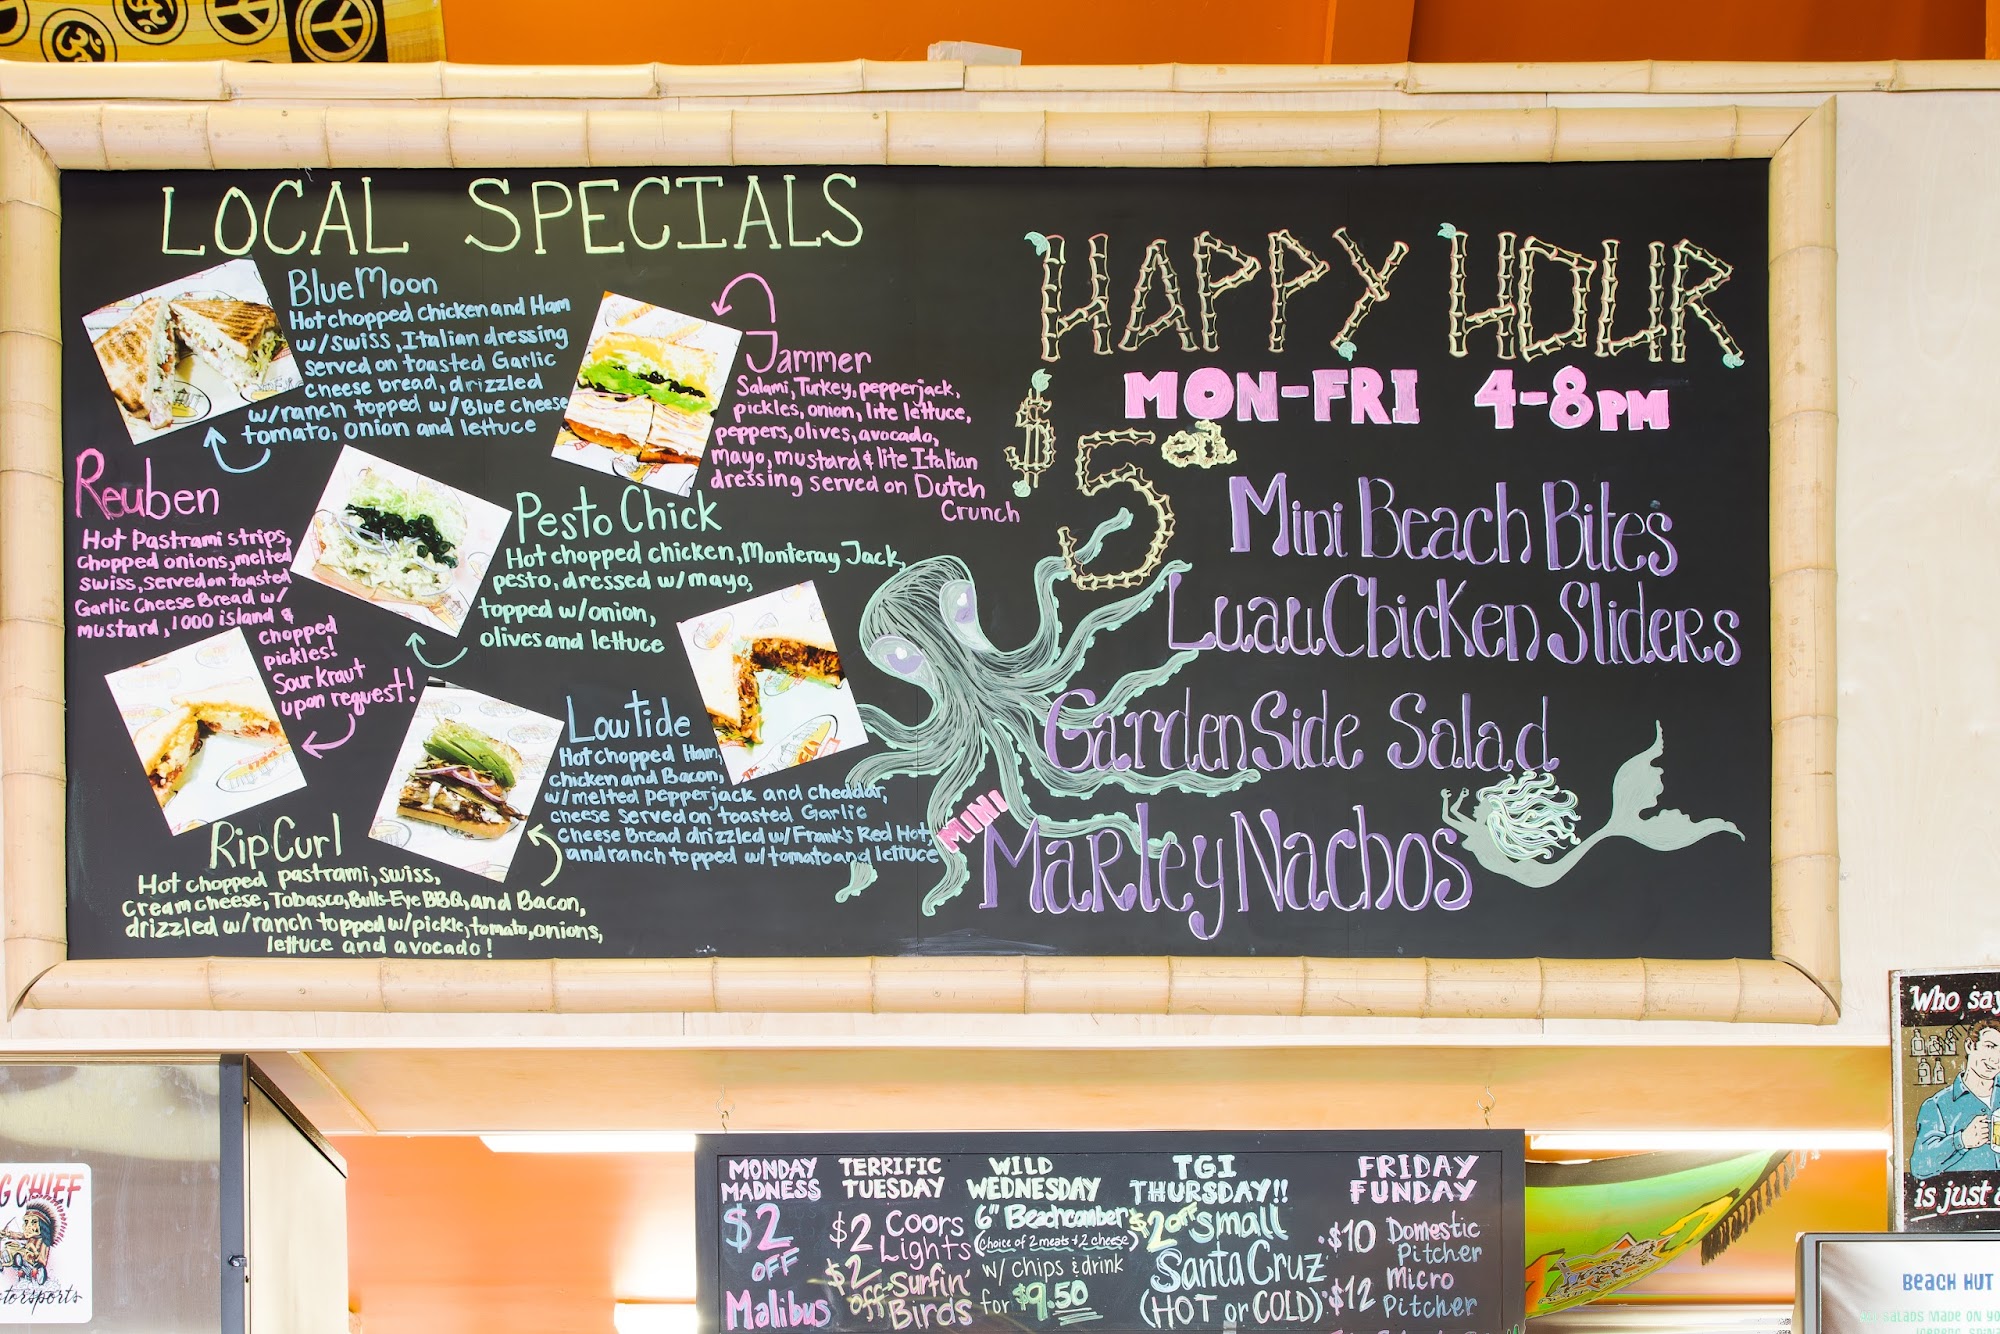 LOCAL SPECIALS
Blue Moon
Hot chopped chicken and Ham
w/swiss, Italian dressing
served on toasted Garlic
cheese bread, drizzled
w/ranch topped w/Blue cheese
tomato, onion and lettuce
Jammer
Salami, Turkey, pepperjack,
pickles, onion, lite lettuce,
peppers, olives, avocado,
mayo, mustard & lite Italian
dressing served on Dutch
Crunch
Reuben
Hot Pastrami strips,
chopped onions, melted
swiss, served on toasted
Garlic Cheese Bread w/
mustard, 1000 island &
chopped
pickles!
Sour Kraut
upon request!
Pesto Chick
Hot chopped chicken, Monteray Jack,
pesto, dressed w/mayo,
topped w/onion,
olives and lettuce
Low tide
Hot chopped Ham,
chicken and Bacon,
w/melted pepperjack and cheddar,
cheese served on toasted Garlic
Cheese Bread drizzled w/Frank's Red Hot,
and ranch topped w/tomato and lettuce
Rip Curl
Hot chopped pastrami, swiss,
cream cheese, Tobasco, Bulls-Eye BBQ, and Bacon,
drizzled w/ranch topped w/pickle, tomato, onions,
lettuce and avocado!
HAPPY HOUR
MON-FRI 4-8PM
$5ea
Mini Beach Bites
Luau Chicken Sliders
Garden Side Salad
MINI
Marley Nachos
MONDAY
MADNESS
$2
OFF
Malibus
TERRIFIC
TUESDAY
$2 Coors
Lights
$2 off Surfin'
Birds
WILD
WEDNESDAY
6" Beachcomber
(Choice of 2 meats & 2 cheese)
w/ chips & drink
for $9.50
TGI
THURSDAY!!
$2 off small
Santa Cruz
(HOT or COLD)
FRIDAY
FUNDAY
$10 Domestic
Pitcher
$12 Micro
Pitcher
Who say
is just a
G CHIEF
torsports
BEACH HUT
SALADS MADE ON YO